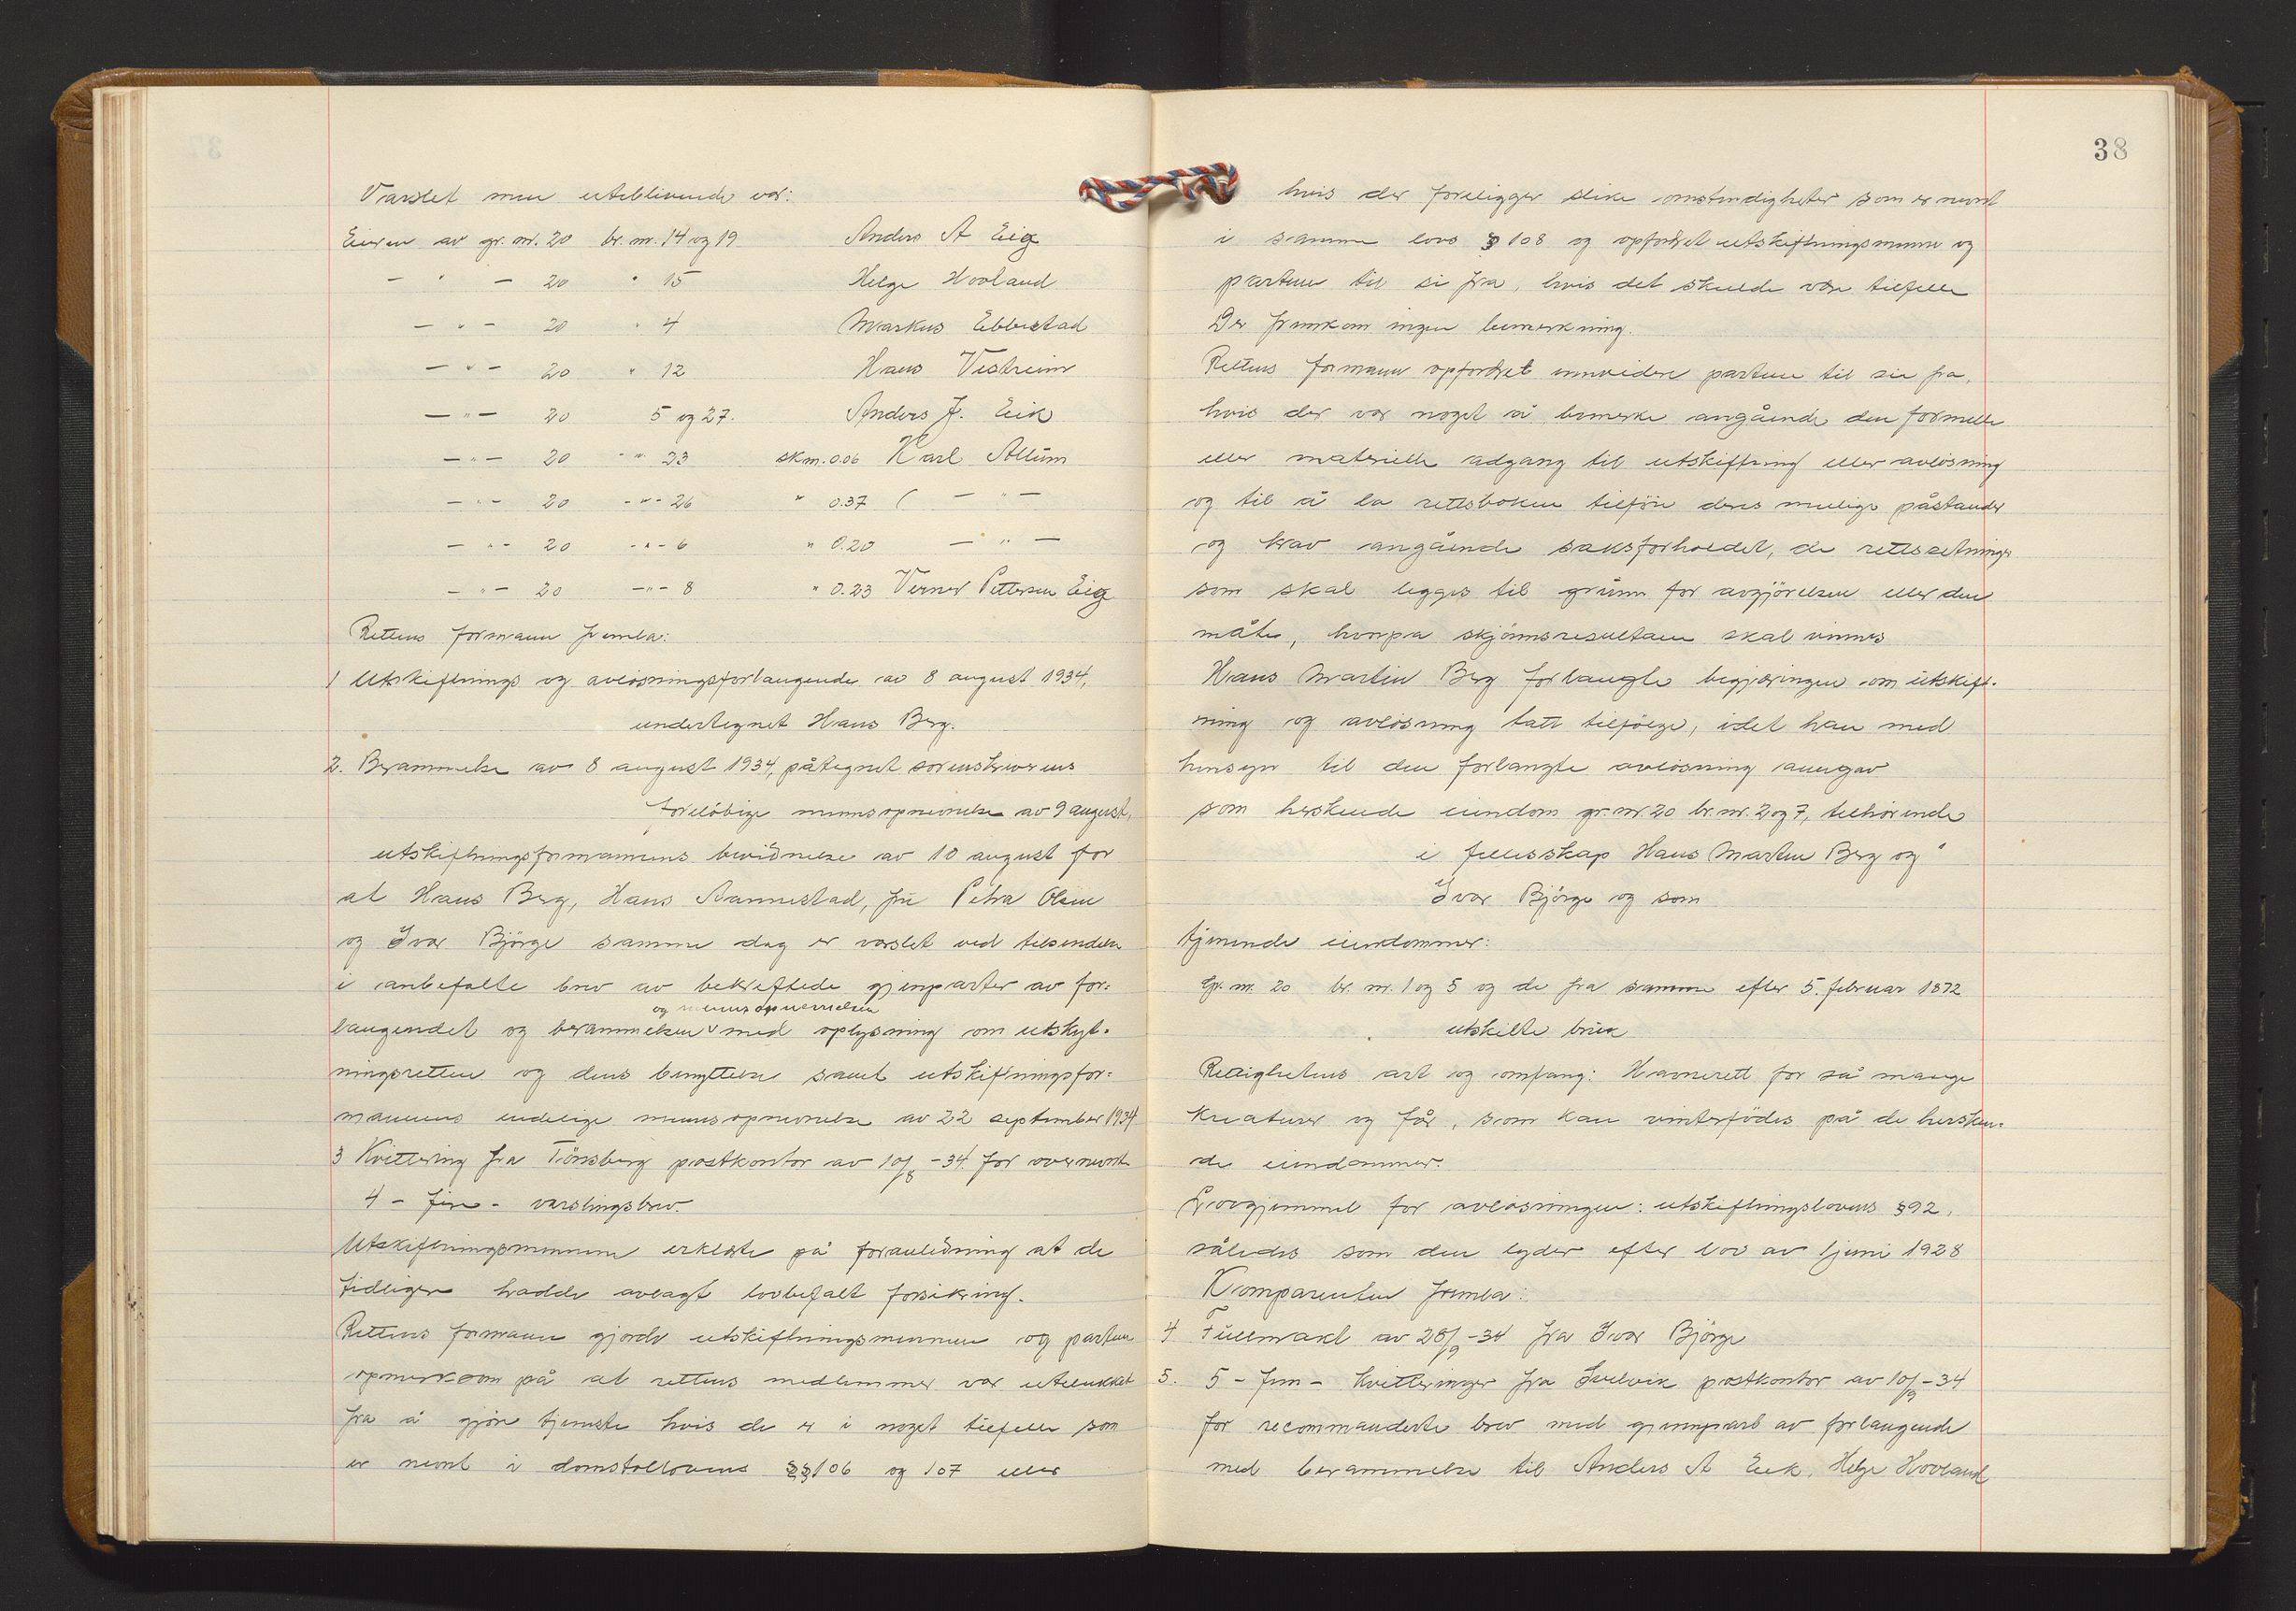 Varslet men uteblivende var:
Eieren av gr. nr. 20 br. nr. 14 og 19 Anders A Eig
— " — 20 " 15 Helge Hovland
— " — 20 " 4 Markus Ebbestad
— " — 20 " 12 Hans Vestreim
— " — 20 5 og 27. Anders J. Eik
— " — 20 - " - 23 skm. 0.06 Karl Allum
— " — 20 - " - 26 " 0.37 ( — " —
— " — 20 - " - 6 " 0.20 — " —
— " — 20 — " - 8 " 0.23 Verner Pettersen Eig
Rettens formann fremla:
1 Utskiftnings og avløsningsforlangende av 8 august 1934,
undertegnet Hans Berg.
2. Berammelse av 8 august 1934, påtegnet sorenskriverens
foreløbige mennsopnevnelse av 9 august,
utskiftningsformannens bevidnelse av 10 august for
at Hans Berg, Hans Aannestad, fru Petra Olsen
og Ivar Bjørge samme dag er varslet ved tilsendelse
i anbefalte brev av bekreftede gjenparter av for=
og mennsopnevnelsen
langendet og berammelsen v med oplysning om utskift=
ningsretten og dens benyttelse samt utskiftningsfor=
mannens endelige mennsopnevnelse av 22 september 1934
3 Kvittering fra Tönsberg postkontor av 10/8 - 34 for ovennevnte
4 - fire - varslingsbrev.
Utskiftningsmennene erklærte på foranledning at de
tidligere hadde avlagt lovbefalt forsikring.
Rettens formann gjorde utskiftningsmennene og partene
opmerksom på at rettens medlemmer var utelukket
fra å gjøre tjeneste hvis de er i noget tilfelle som
er nevnt i domstollovens §§ 106 og 107 eller
38
hvis der foreligger slike omstendigheter som er nevnt
i samme lovs § 108 og opfordret utskiftningsmennene og
partene til si fra, hvis det skulde være tilfelle
Der fremkom ingen bemerkning.
Rettens formann opfordret ennvidere partene til si fra,
hvis der var noget å bemerke angående den formelle
eller materielle adgang til utskiftning eller avløsning
og til å la rettsboken tilføre deres mulige påstander
og krav angående saksforholdet, de rettssetninger
som skal legges til grunn for avgjørelsen eller den
måte, hvorpå skjønnsresultatene skal vinnes
Hans Martin Berg forlangte begjæringen om utskift=
ning og avløsning tatt tilfølge, idet han med
hensyn til den forlangte avløsning anngav
som herskende eiendom gr. nr. 20 br. nr. 2 og 7, tilhørende
i fellesskap Hans Martin Berg og
Ivar Bjørge og som
tjenende eiendommer:
Gr. nr. 20 br. nr. 1 og 5 og de fra samme efter 5. februar 1872
utskilte bruk
Rettighetens art og omfang: Havnerett for så mange
kreaturer og får, som kan vinterfødes på de hersken=
de eiendommer.
Lovhjemmel for avløsningen: utskiftningslovens § 92,
således som den lyder efter lov av 1 juni 1928
Komparenten fremla:
4. Fullmakt av 28/9 - 34 fra Ivar Bjørge
5. 5 - fem - kvitteringer fra Svelvik postkontor av 10/9 - 34
for recommanderte brev med gjenpart av forlangende
med berammelse til Anders A Eik, Helge Hovland